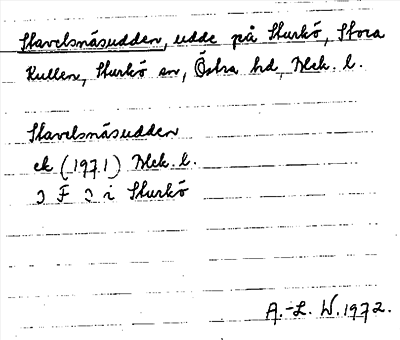 Stavelsnäsudden, udde på Sturkö, Stora
Kullen, Sturkö sn, Östra hd, Blek. l.
Stavelsnäsudden
ek (1971) Blek. l.
ɔ F ɔ i Sturkö
A.-L. W. 1972.